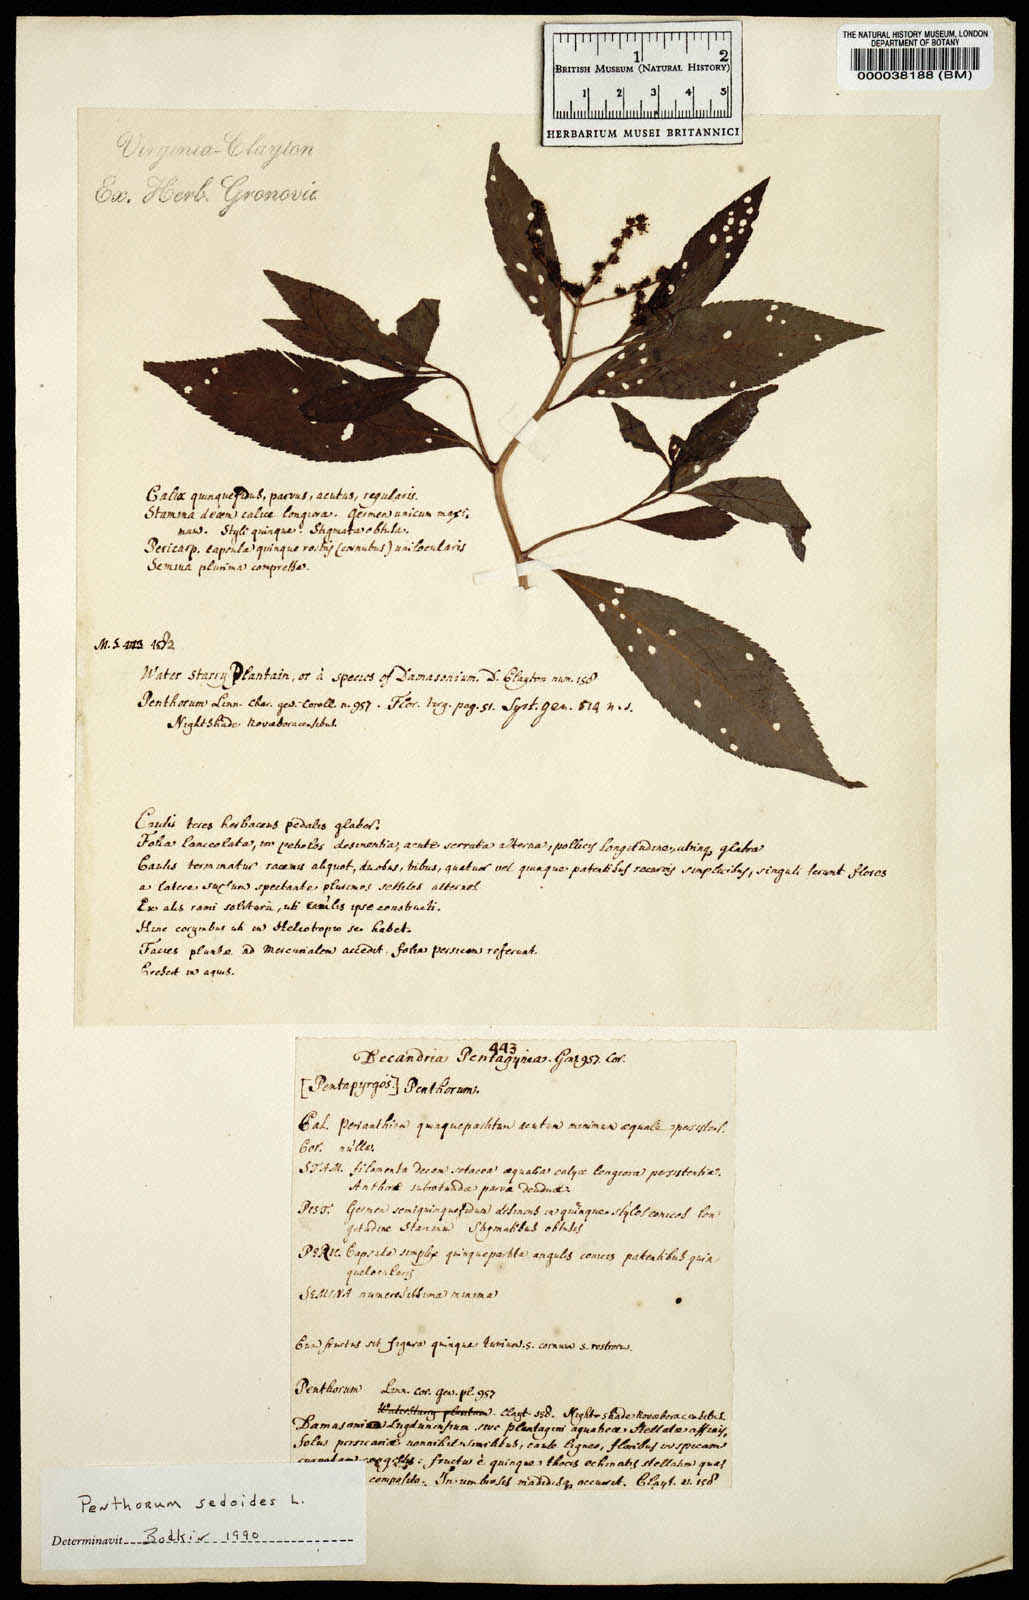 THE NATURAL HISTORY MUSEUM, LONDON
DEPARTMENT OF BOTANY
000038188 (BM)
1 2
BRITISH MUSEUM (NATURAL HISTORY)
1 2 3 4 5
HERBARIUM MUSEI BRITANNICI
Virginia-Clayton
Ex. Herb. Gronovii
Calix quinquefidus, parvus, acutus, regularis.
Stamina decem calice longiora. Germen unicum maxi-
mum. Styli quinque. Stigmata obtusa.
Pericarp. capsula quinque rostris (cornubus) unilocularis
Semina plurima compressa.
M.S. 443
Water starry Plantain, or a species of Damasonium. D. Clayton num. 158
Penthorum Linn. Char. gen. Coroll. n. 957. Flor. Virg. pag. 51. Syst. gen. 514 n. 1.
Nightshade Novaboracensibus.
Caulis teres herbaceus pedalis glaber.
Folia lanceolata, in petiolos desinentia, acute serrata alterna, pollicis longitudine, utrinq glabra
Caulis terminatur racemis aliquot, duobus, tribus, quatuor vel quinque patentibus recurvis simplicibus, singuli ferunt flores
a latere sursum spectante plurimos sessiles alternos
Ex alis rami solitarii, uti caulis ipse constructi.
Hinc corymbus uti in Heliotropio se habet.
Facies plantae ad Mercurialem accedit. folia persicam referunt.
Crescit in aquis.
443
Decandria Pentagynia. Gen. 957. Cor.
[Pentapyrgos.] Penthorum.
Cal. Perianthium quinquepartitum acutum minimum æquale persistens.
Cor. nulla.
STAM. filamenta decem setacea æqualia calyce longiora persistentia.
Antheræ subrotundæ parvæ deciduæ.
PIST. Germen semiquinquefidum desinens in quinque stylos conicos lon
gitudine staminum Stigmatibus obtusis
PERIC. Capsula simplex quinquepartita angulis conicis patentibus quin
quelocularis
SEMINA numerosissima minima
Cum fructus sit figura quinque turrium s. cornuum s. rostrorum.
Penthorum Linn. Cor. Gen. pl. 957
Water Starry plantain. Clayt. 158. Night-shade Novaboracensibus.
Damasonio Lugdunensium sive plantagini aquaticæ stellatæ affinis,
folus persicariæ nonnihil similibus, caule ligneo, floribus in spicam
congestis: fructu è quinque thecis echinatis stellatim quasi
composito. In umbrosis madidisq occurrit. Clayt. n. 158
Penthorum sedoides L.
Determinavit Bodkin 1990